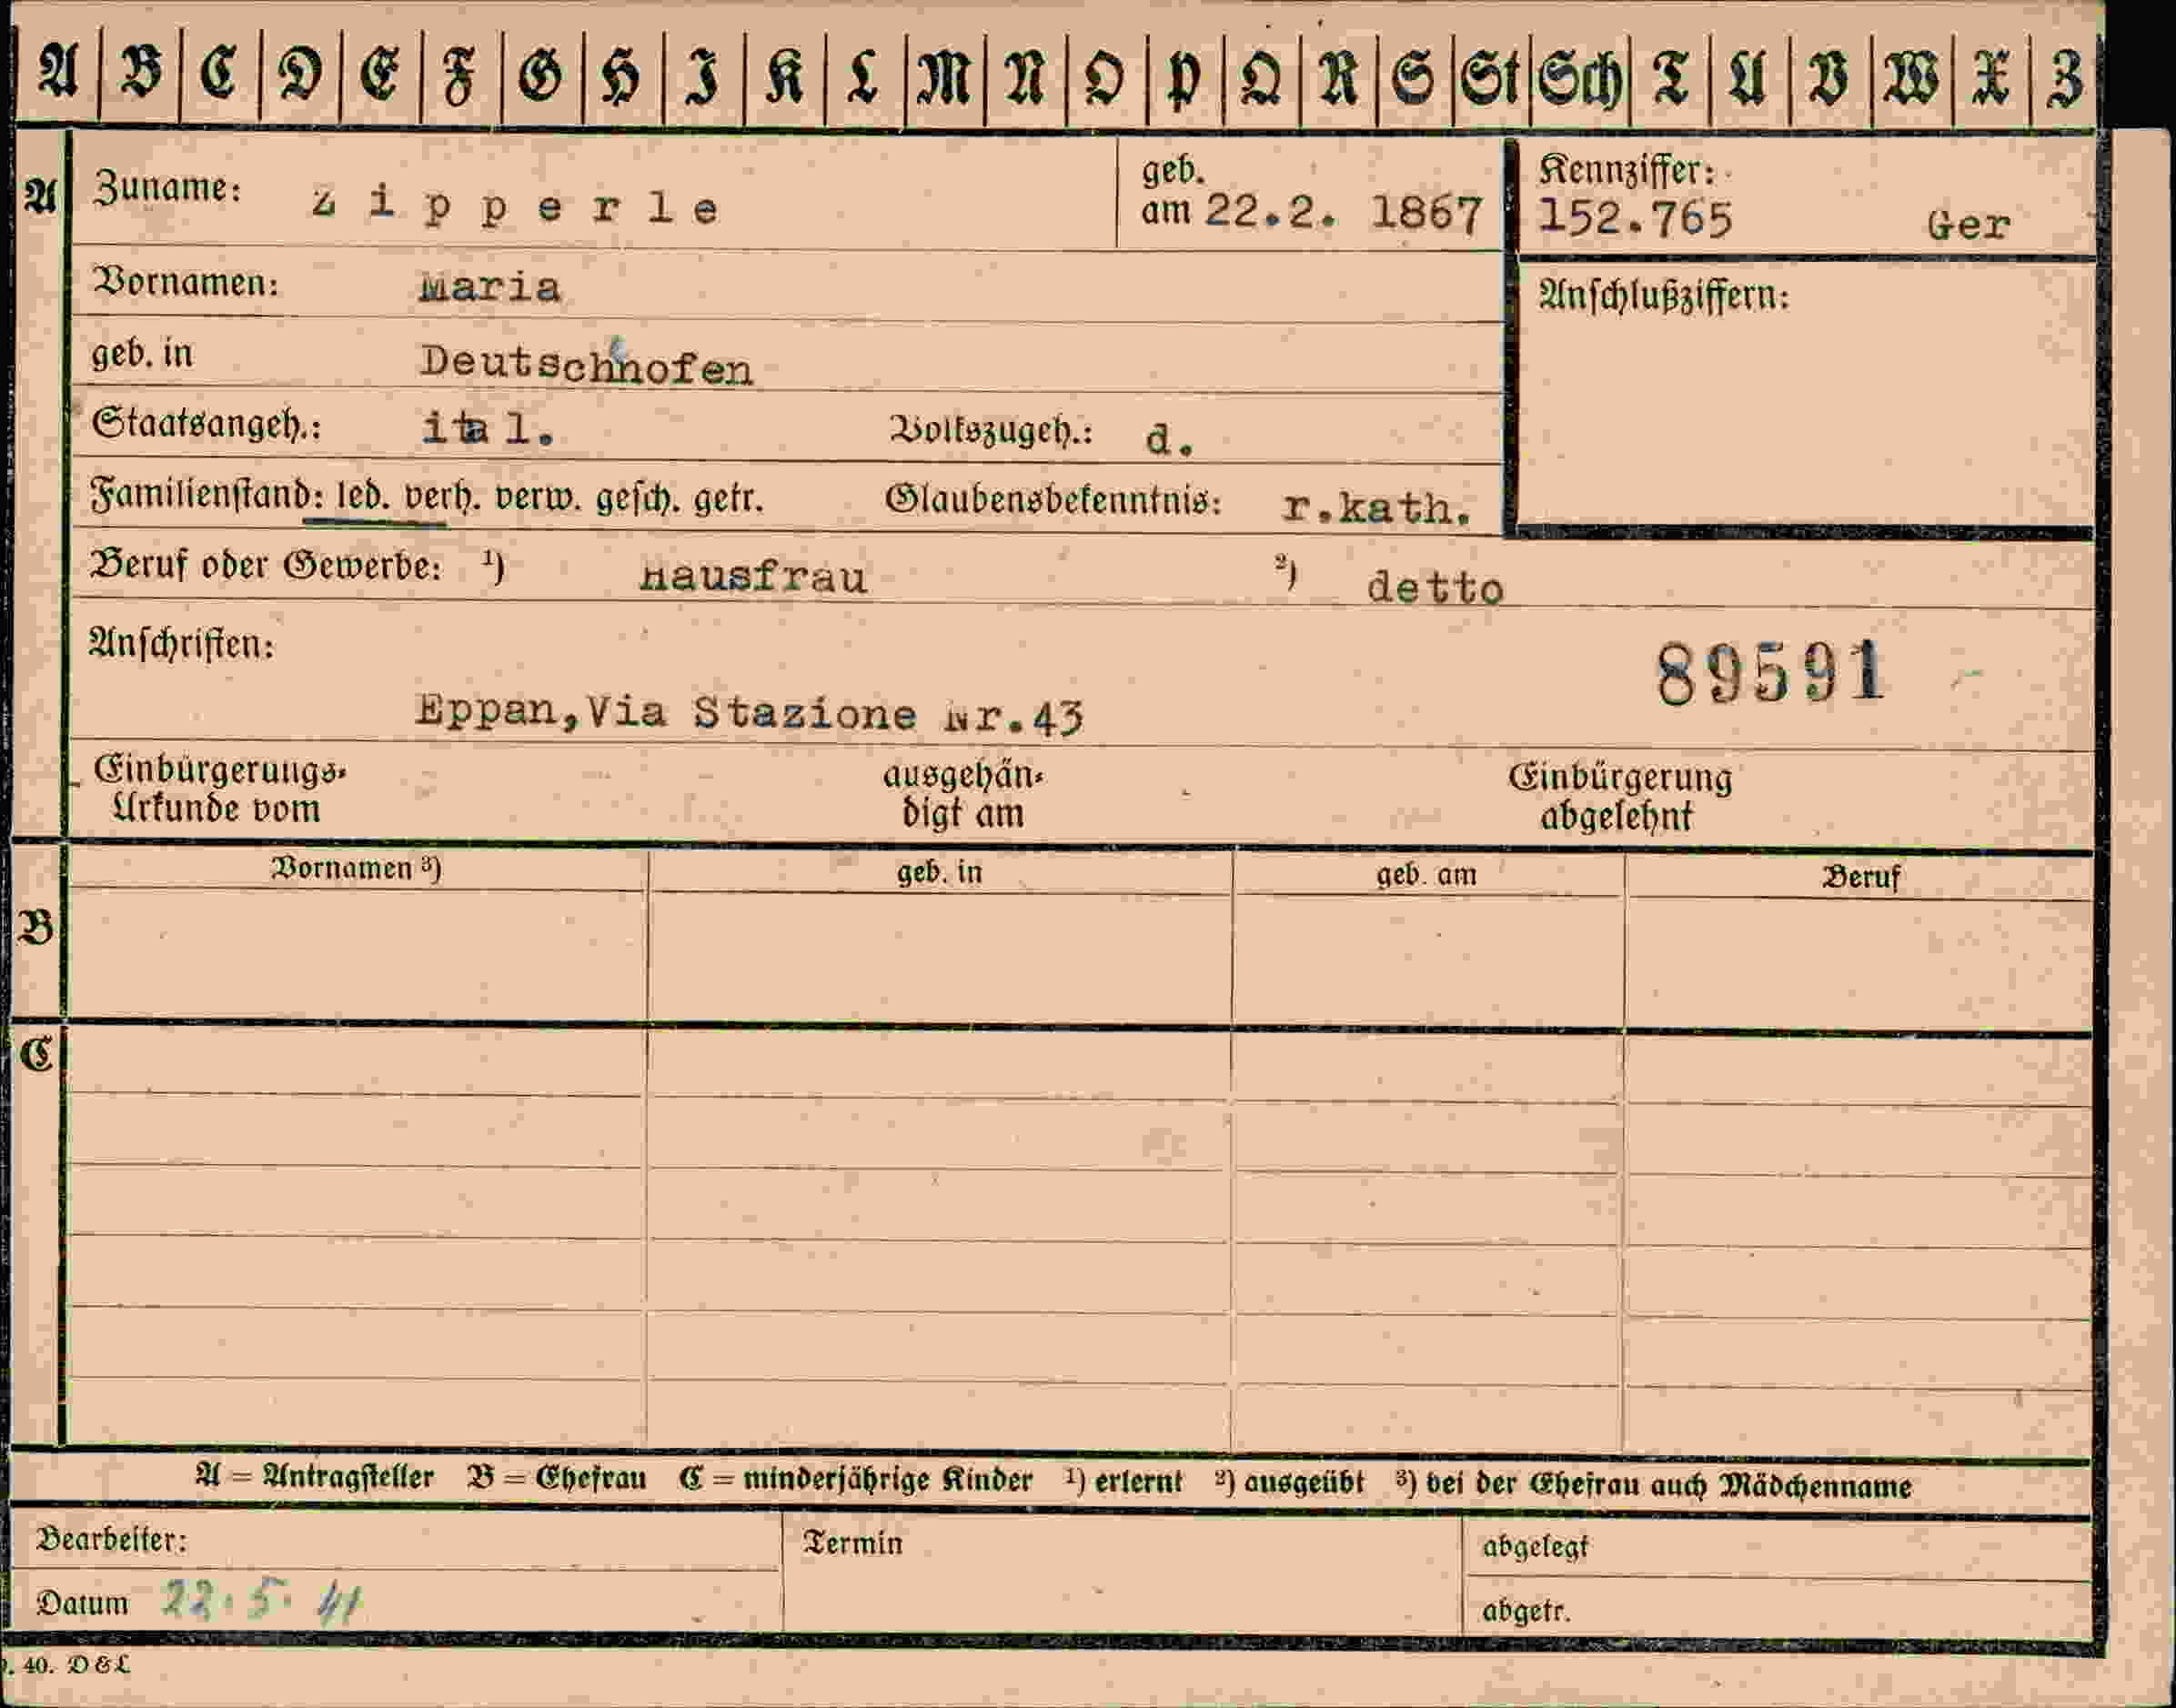 A B C D E F G H I K L M N O P Q R S St Sch T U V W X Z
A Zuname: Zipperle geb. am 22.2. 1867 Kennziffer: 152.765 Ger
Vornamen: Maria Anschlußziffern:
geb. in Deutschnofen
Staatsangeh.: ital. Volkszugeh.: d.
Familienstand: led. verh. verw. gesch. getr. Glaubensbekenntnis: r.kath.
Beruf oder Gewerbe: ¹) Hausfrau ²) detto
Anschriften: 89591
Eppan,Via Stazione Nr.43
Einbürgerungs- ausgehän- Einbürgerung
Urkunde vom digt am abgelehnt
Vornamen ³) geb. in geb. am Beruf
B
C
A = Antragsteller B = Ehefrau C = minderjährige Kinder ¹) erlernt ²) ausgeübt ³) bei der Ehefrau auch Mädchenname
Bearbeiter: Termin abgelegt
Datum 22.5.41 abgetr.
40. D&L